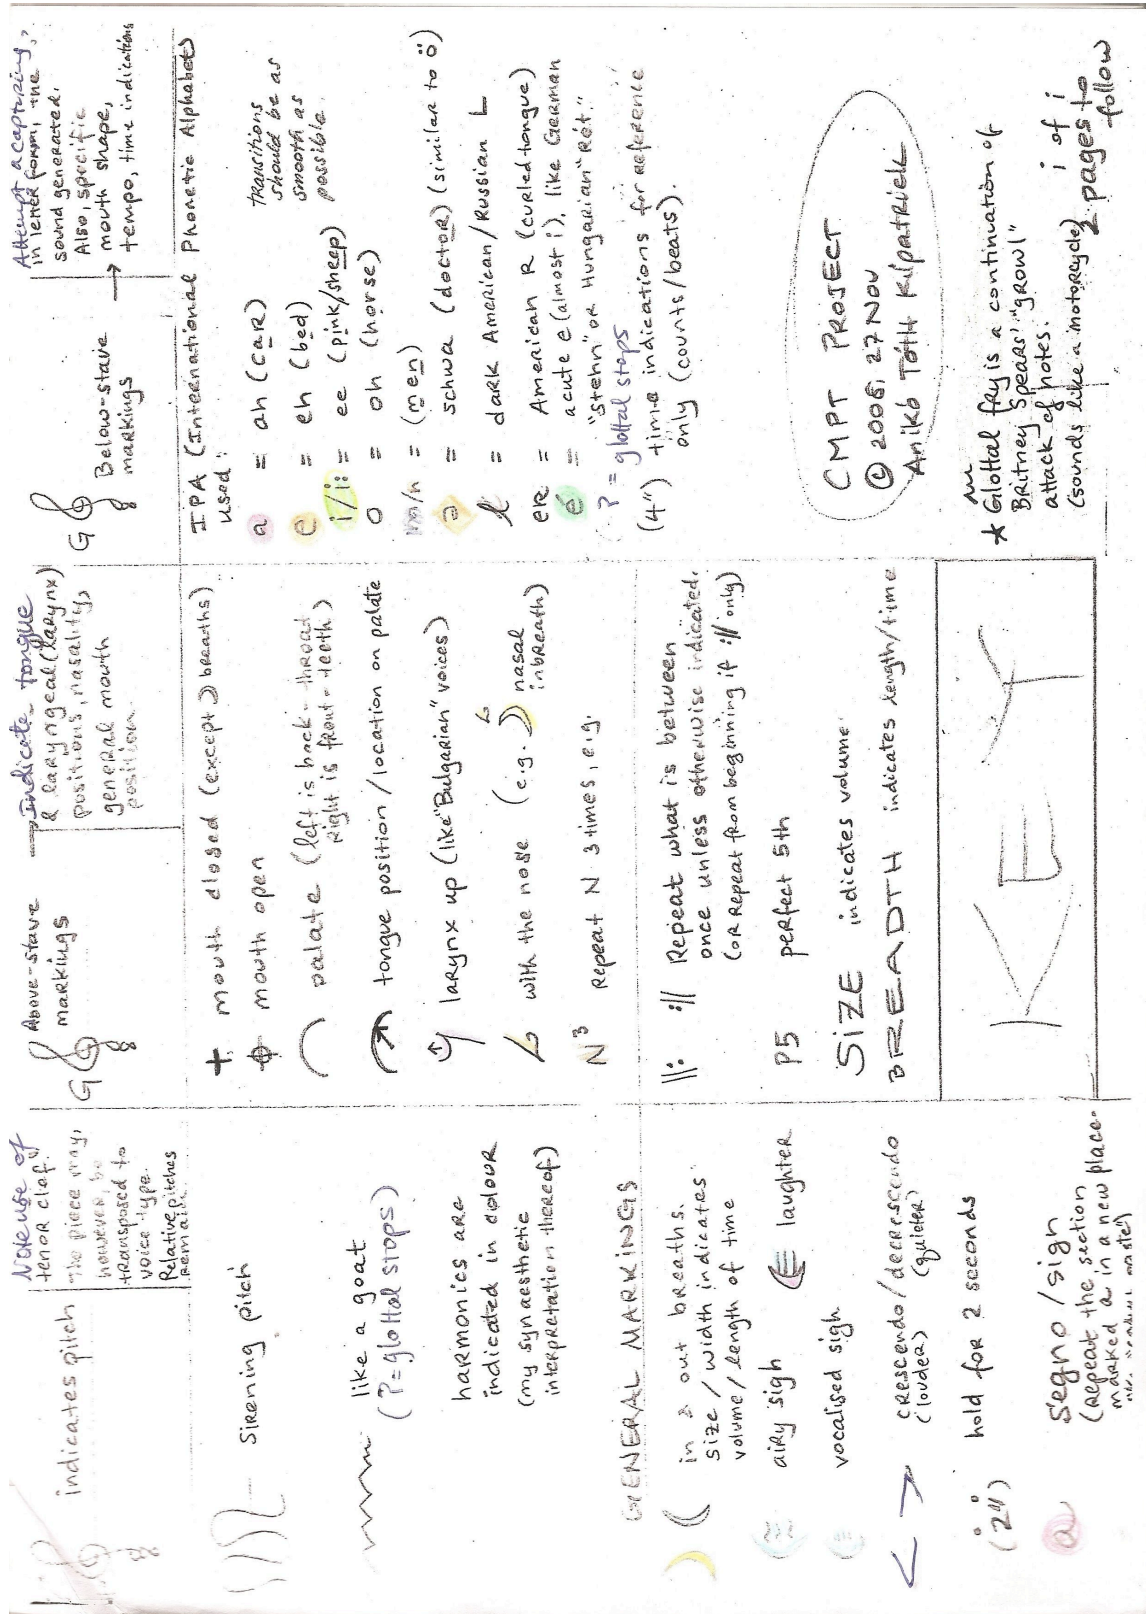 indicates pitch
Note use of
tenor clef!
The piece may,
however, be
transposed to
voice type.
Relative pitches
remain.
Sirening pitch
like a goat
(ʔ = glottal stops)
harmonics are
indicated in colour
(my synaesthetic
interpretation thereof)
GENERAL MARKINGS
in & out breaths.
size / width indicates
volume / length of time
airy sigh
laughter
vocalised sigh
< > crescendo/decrescendo
(louder) (quieter)
(2") hold for 2 seconds
a segno/sign
(repeat the section
marked a in a new place.
G Above-stave
markings
→ Indicate tongue
& laryngeal (larynx)
positions, nasality,
general mouth
position.
+ mouth closed (except breaths)
ϕ mouth open
palate (left is back - throat
right is front - teeth.)
tongue position/location on palate
larynx up (like "Bulgarian" voices)
with the nose (e.g. nasal
inbreath)
N³ Repeat N 3 times, e.g.
||: :|| Repeat what is between
once unless otherwise indicated.
(or Repeat from beginning if :|| only)
P5 perfect 5th
SIZE indicates volume
BREADTH indicates length/time
KEY
G Below-stave
markings
→ Attempt at capturing,
in letter form, the
sound generated.
Also, specific
mouth shape,
tempo, time indications
IPA (International Phonetic Alphabet)
used:
a = ah (car)
e = eh (bed)
i/i: = ee (pink/sheep)
o = oh (horse)
m/n = (men)
ə = schwa (doctor) (similar to ö)
ɫ = dark American/Russian L
er = American R (curled tongue)
é = acute e (almost i), like German
"stehn" or Hungarian "Rét."
transitions
should be as
smooth as
possible.
(ʔ = glottal stops
(4") time indications for reference
only (counts/beats).
CMPT PROJECT
© 2006, 27 Nov
Anikó Tóth Kilpatrick
* Glottal fry is a continuation of
Britney Spears' "growl"
attack of notes.
(sounds like a motorcycle)
i of i
2 pages to
follow